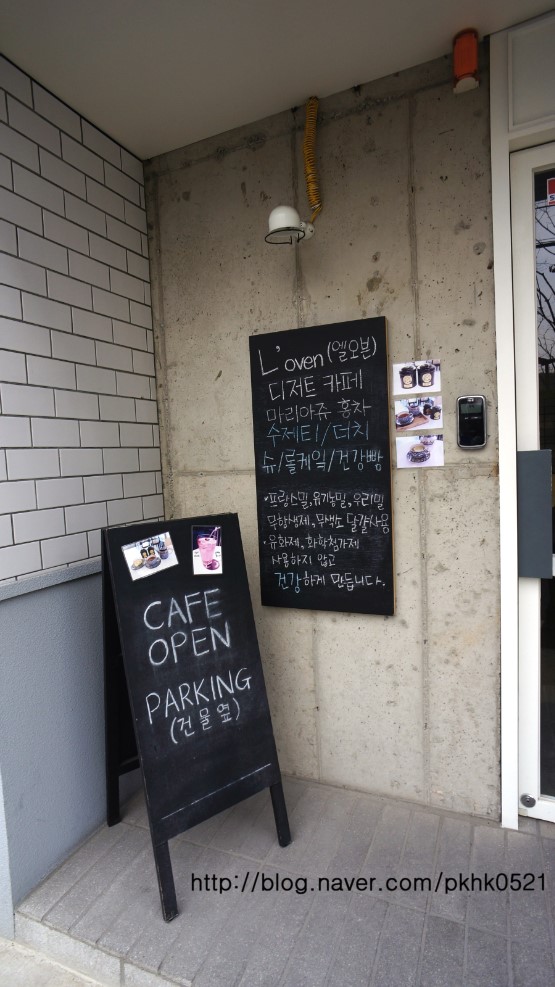 L'oven (엘오븐)
디저트 카페
마리아쥬 홍차
수제티/더치
슈/롤케잌/건강빵
•프랑스밀,유기농밀,우리밀
무항생제,무색소 달걀사용
•유화제,화학첨가제
사용하지 않고
건강하게 만듭니다.
CAFE
OPEN
PARKING
(건물옆)
http://blog.naver.com/pkhk0521